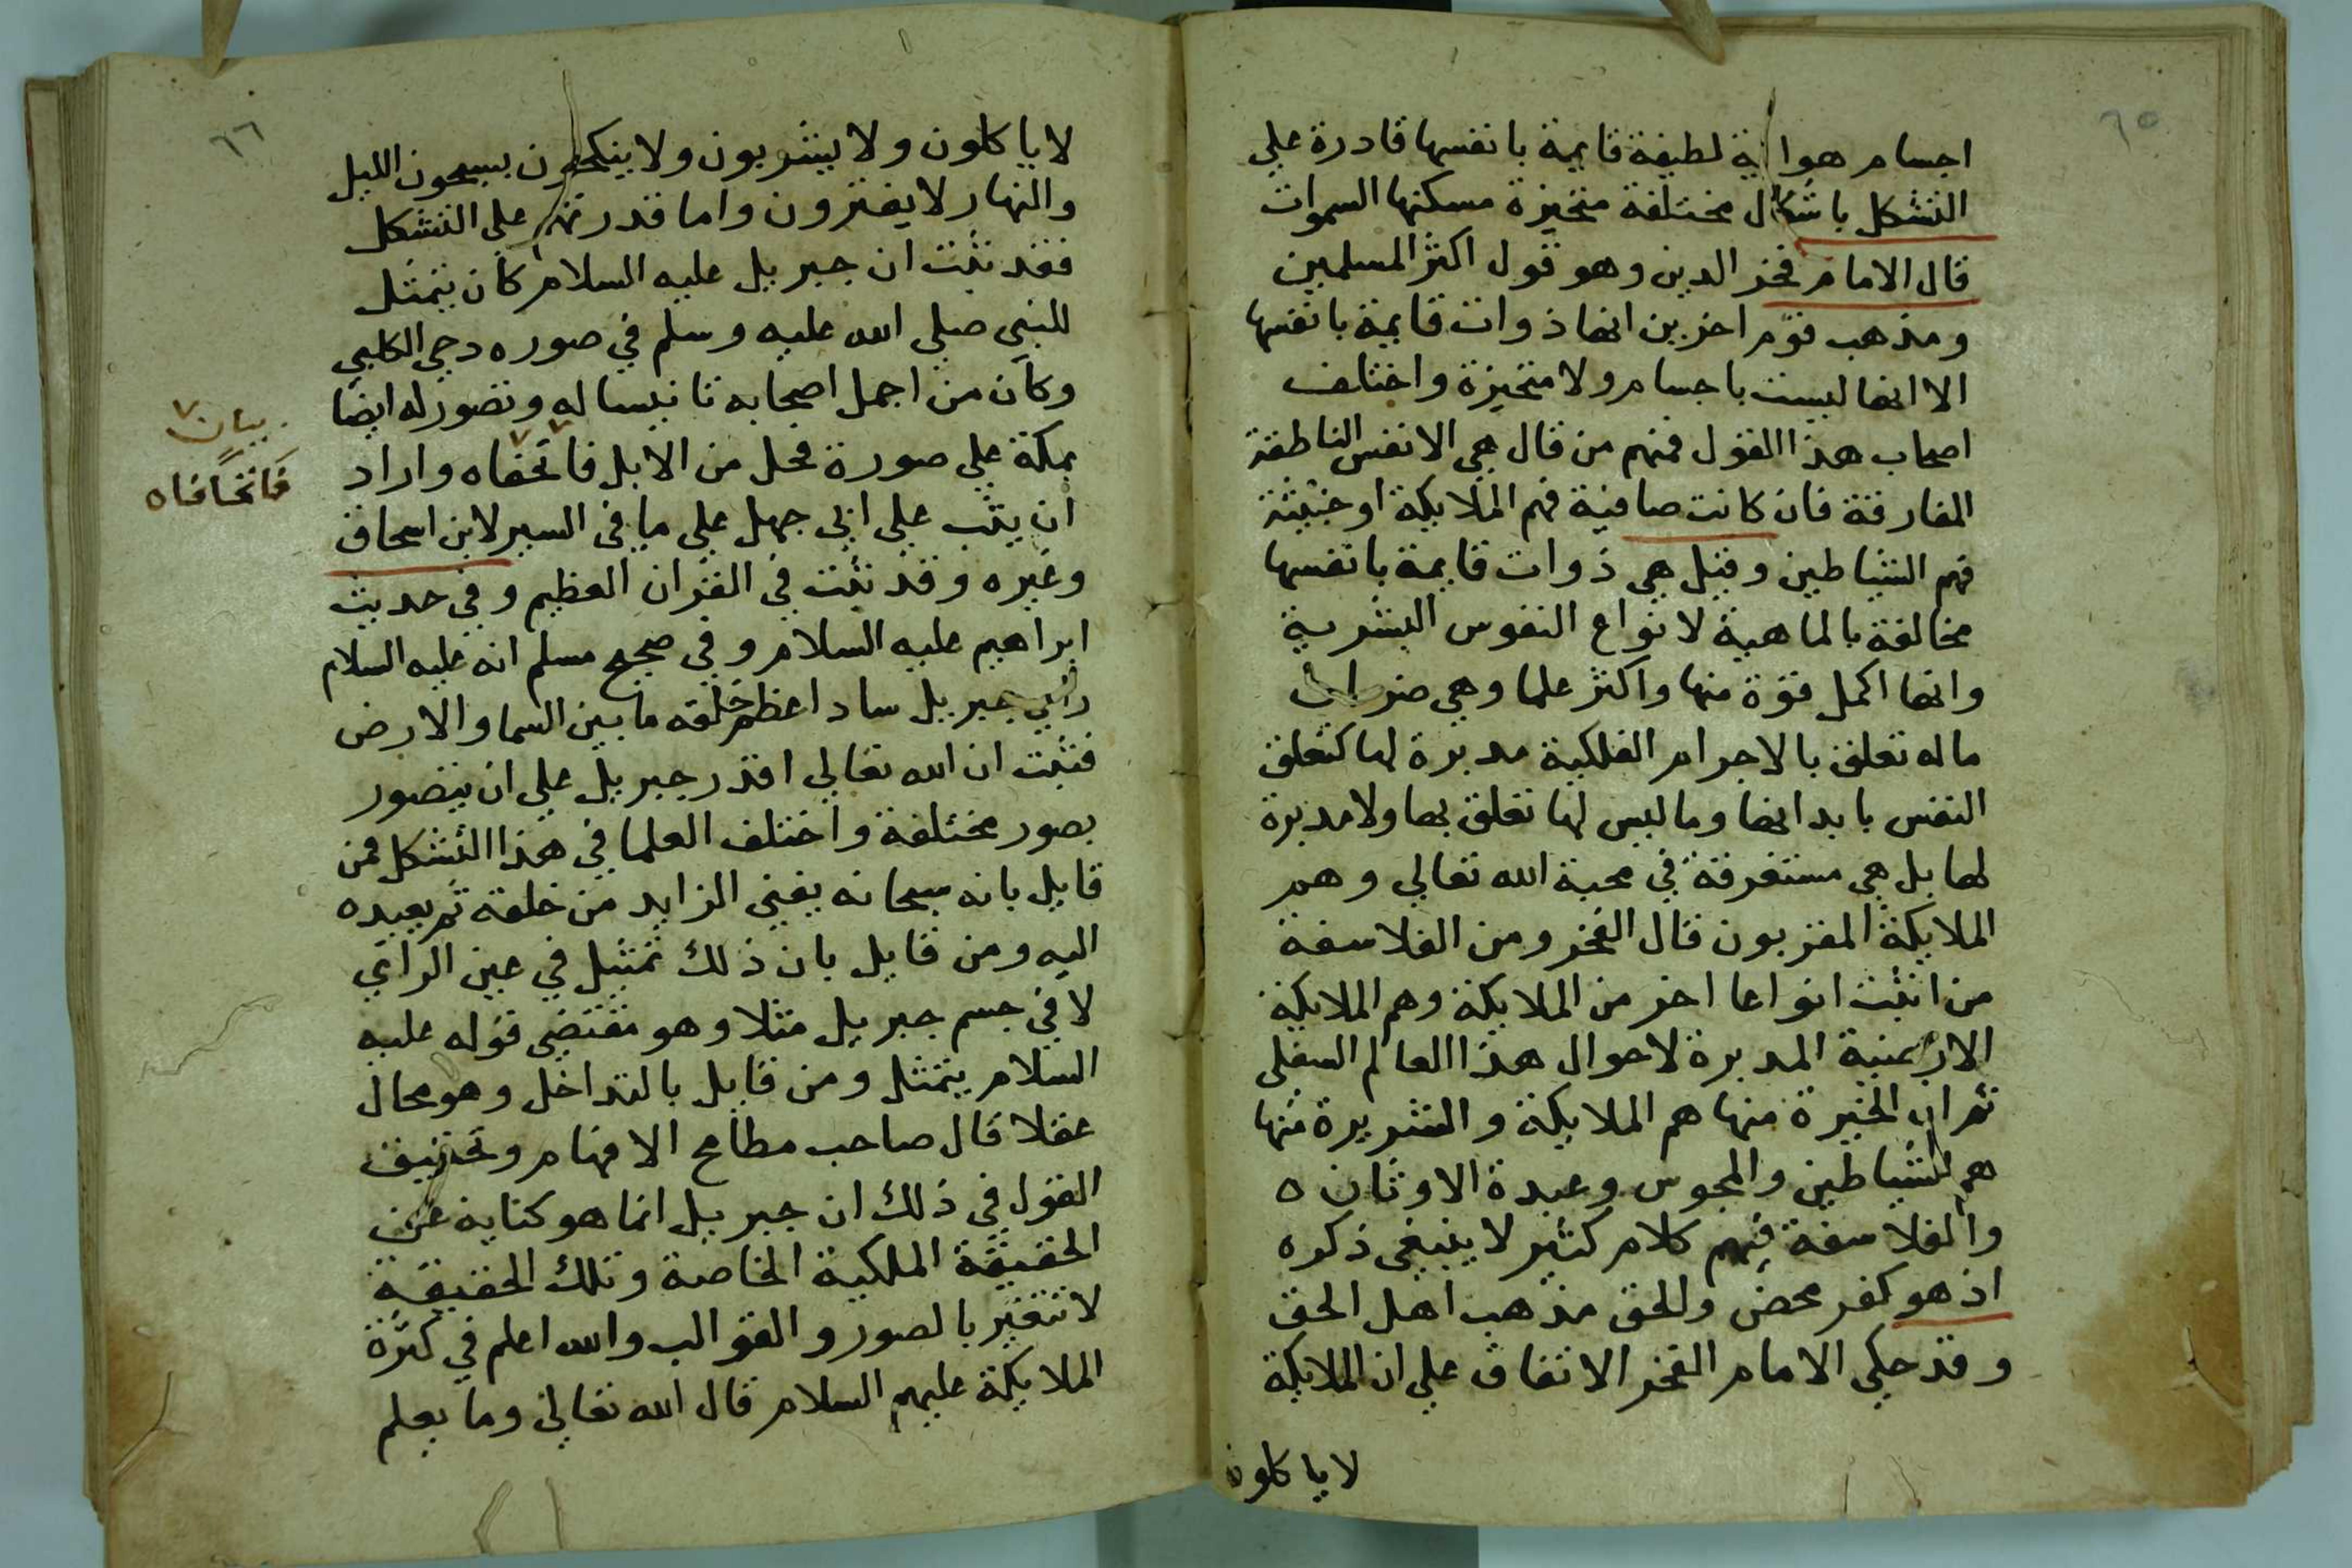 ٦٥
اجسام هوائية لطيفة قايمة بانفسها قادرة علي
التشكل باشكال مختلفة متحيزة مسكنها السموات
قال الامام فخر الدين وهو قول اكثر المسلمين
ومذهب قوم اخرين انها ذوات قايمة بانفسها
الا انها ليست باجسام ولا متحيزة واختلف
اصحاب هذا القول فمنهم من قال هي الانفس الناطقة
المفارقة فان كانت صافية فهم الملايكة او خبيثة
فهم الشياطين وقيل هي ذوات قايمة بانفسها
مخالفة بالماهية لانواع النفوس البشرية
وانها اكمل قوة منها واكثر علما وهي ضربان
ماله تعلق بالاجرام الفلكية مدبرة لها كتعلق
النفس بابدانها وما ليس لها تعلق بها ولا مدبرة
لها بل هي مستغرقة في محبة الله تعالي وهم
الملايكة المقربون قال الفخر ومن الفلاسفة
من اثبت انواعا اخر من الملايكة وهم الملايكة
الارضية المدبرة لاحوال هذا العالم السفلي
ثم ان الخيرة منها هم الملايكة والشريرة منها
هم الشياطين والمجوس وعبدة الاوثان ه
والفلاسفة فيهم كلام كثير لا ينبغي ذكره
اذ هو كفر محض والحق مذهب اهل الحق
وقد حكي الامام الفخر الاتفاق علي ان الملايكة
لا ياكلون
٦٦
لا ياكلون ولا يشربون ولا ينكحون يسبحون الليل
والنهار لا يفترون واما قدرتهم علي التشكل
فقد ثبت ان جبريل عليه السلام كان يتمثل
للنبي صلي الله عليه وسلم في صوره دحي الكلبي
وكان من اجمل اصحابه تانيسا له وتصور له ايضا
بمكة علي صورة فحل من الابل فاتحفاه واراد
ان يثب علي ابي جهل علي ما في السير لابن اسحاق
وغيره وقد ثبت في القران العظيم وفي حديث
ابراهيم عليه السلام وفي صحيح مسلم انه عليه السلام
راي جبريل سادا عظم خلقه ما بين السما والارض
فثبت ان الله تعالي اقدر جبريل علي ان يتصور
بصور مختلفة واختلف العلما في هذا التشكل فمن
قايل بانه سبحانه يفني الزايد من خلقة ثم يعيده
اليه ومن قايل بان ذلك تمثيل في عين الرائي
لا في جسم جبريل مثلا وهو مقتضي قوله عليه
السلام يتمثل ومن قايل بالتداخل وهو محال
عقلا قال صاحب مطامح الافهام وتحقيق
القول في ذلك ان جبريل انما هو كناية عن
الحقيقة الملكية الخاصة وتلك الحقيقة
لا تتغير بالصور والقوالب والله اعلم في كثرة
الملايكة عليهم السلام قال الله تعالي وما يعلم
بيان